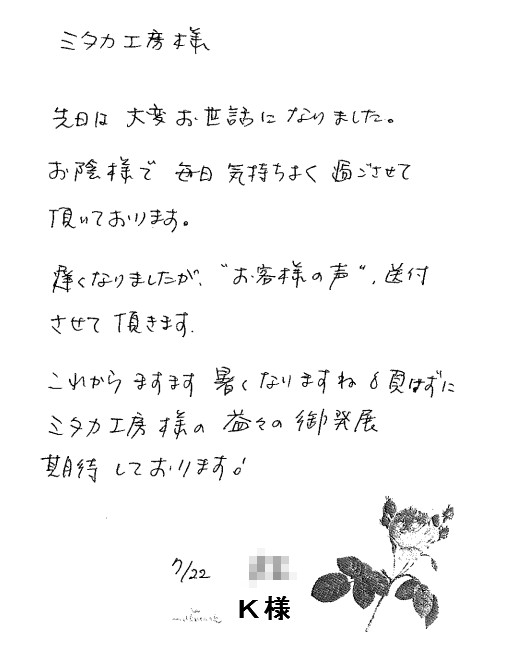 ミタカ工房様
先日は 大変お世話になりました。
お陰様で 毎日 気持ちよく 過ごさせて
頂いております。
遅くなりましたが、"お客様の声"、送付
させて 頂きます.
これから ますます 暑くなりますね
ミタカ工房様の 益々の 御発展
期待しております!
7/22
K様